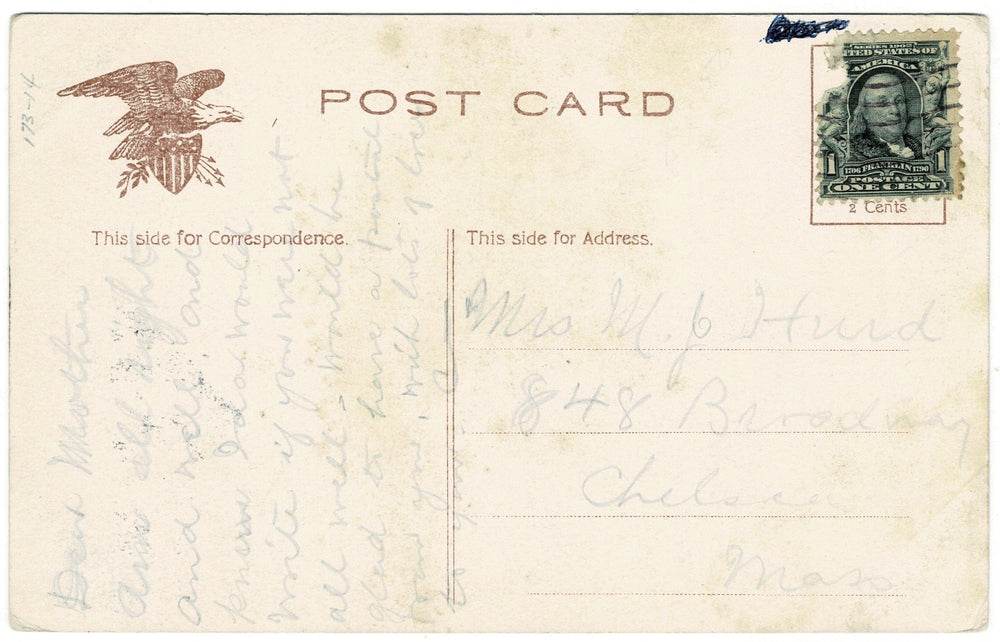 173-14
POST CARD
SERIES 1902
UNITED STATES OF
AMERICA
1 1
1706 FRANKLIN 1790
POSTAGE
ONE CENT
2 Cents
This side for Correspondence.
This side for Address.
Dear Mother
am all right
and well and
know Ida would
write if you were not
all well - would be
glad to have a postal
from you, with lots of love
to you
Mrs M. J. Hurd
848 Broadway
Chelsea
Mass